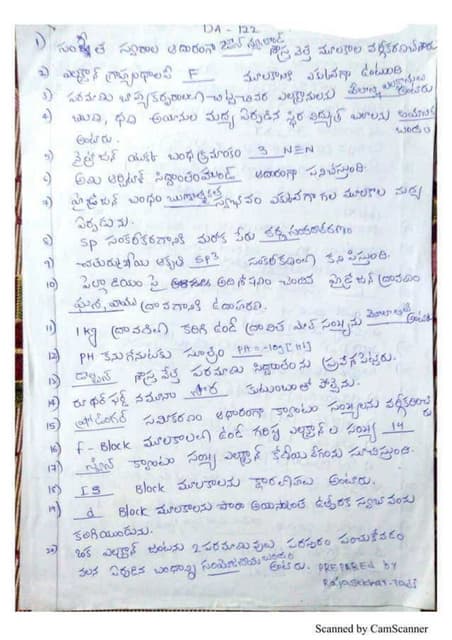 DA - 122
1) సంకేత స్థూలాల ఆధారంగా శాస్త్రవేత్త మూలకాల వర్గీకరణ చేశారు
2) ఎలక్ట్రాన్ F మూలకానికి ఎక్కువగా ఉంటుంది
3) పరమాణు చిట్టచివర ఎలక్ట్రానులను అంటారు
4) అయాను మధ్య ఏర్పడిన స్థిర విద్యుత్ బలాలను అయానిక
బంధం
అంటారు.
5) నైట్రోజన్ యొక్క బంధ క్రమాంకం 3 N≡N
6) అణు ఆర్బిటాల్ సిద్ధాంతం ఆధారంగా పనిచేస్తుంది.
7) హైడ్రోజన్ బంధం ఋణాత్మకత స్వభావం ఎక్కువగా గల మూలకాల మధ్య
ఏర్పడును.
8) sp సంకరీకరణానికి మరొక పేరు
9) చతుర్ముఖీయ ఆకృతి sp3 సంకరీకరణంలో కనిపిస్తుంది.
10) పెల్లాడియం పై అధిశోషణం చెందిన హైడ్రోజన్ ద్రావణం
ఘన, వాయు ద్రావణానికి ఉదాహరణ.
11) 1kg ద్రావణిలో కరిగి ఉండే ద్రావిత మోల్ సంఖ్యను మొలాలిటీ అంటారు
12) PH కనుగొనుటకు సూత్రం PH = -log [H+]
13) డాల్టన్ శాస్త్రవేత్త పరమాణు సిద్ధాంతంను ప్రవేశపెట్టారు.
14) రూథర్ ఫర్డ్ నమూనా సౌర కుటుంబంతో పోల్చెను.
15) ష్రోడింగర్ సమీకరణం ఆధారంగా క్వాంటం సంఖ్యలను వర్గీకరించారు
16) f - Block మూలకాలలో ఉండే గరిష్ట ఎలక్ట్రాన్ ల సంఖ్య 14
17) స్పిన్ క్వాంటం సంఖ్య ఎలక్ట్రాన్ కోణీయ వేగంను సూచిస్తుంది.
18) IS Block మూలకాలను క్షారలోహాలు అంటారు.
19) d Block మూలకాలను ఉత్ప్రేరక స్వభావంను
కలిగియుండును.
20) ఒక ఎలక్ట్రాన్ జంటను 2 పరమాణువులు పరస్పరం పంచుకోవడం
వలన ఏర్పడిన బంధాన్ని అంటారు. PREPARED BY
Scanned by CamScanner